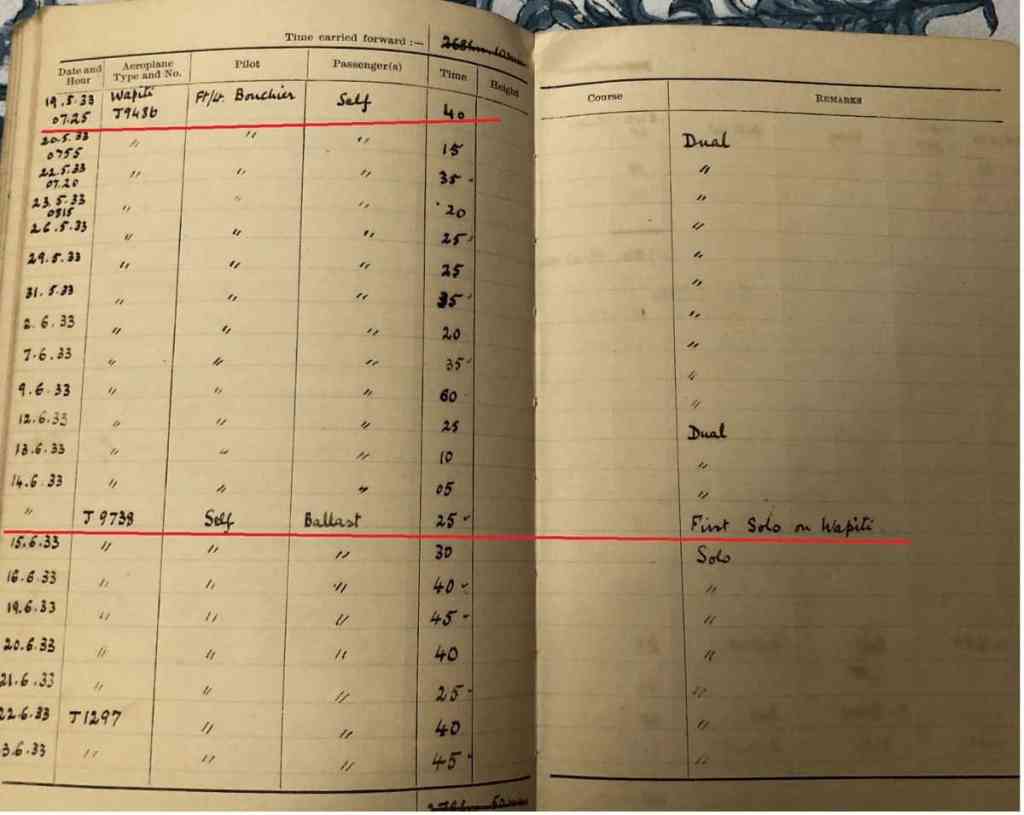 Time carried forward :—
Date and Hour Aeroplane Type and No. Pilot Passenger(s) Time Height Course REMARKS
19.5.33 Wapiti Ft/Lt. Bouchier Self
07.25 J9486 40
20.5.33 0755 " " " 15 Dual
22.5.33 07.20 " " " 35 "
23.5.33 0815 " " " 20 "
26.5.33 " " " 25 "
29.5.33 " " " 25 "
31.5.33 " " " 35 "
2.6.33 " " " 20 "
7.6.33 " " " 35 "
9.6.33 " " " 60 "
" 
12.6.33 " " " 25 Dual
13.6.33 " " " 10 "
14.6.33 " " " 05 "
" J9738 Self Ballast 25 First Solo on Wapiti
15.6.33 " " " 30 Solo
16.6.33 " " " 40 "
19.6.33 " " " 45 "
20.6.33 " " " 40 "
21.6.33 " " " 25 "
22.6.33 J1297 " " 40 "
3.6.33 " " " 45 "